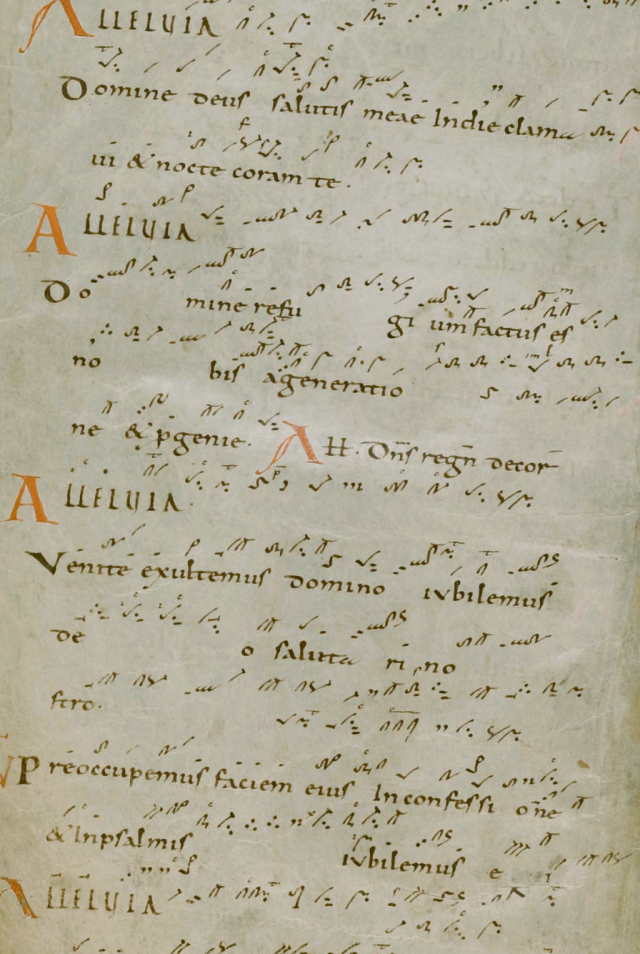 ALLELUIA
Domine deus salutis meae In die clama
ui & nocte coram te.
ALLELUIA
Do mine refu gi um factus es
no bis a generatio
ne & p̱genie. All. Dn̄s regn̄ decor̄
ALLELUIA.
Venite exultemus domino iubilemus
de o saluta ri no
stro.
V Preoccupemus faciem eius In confessi one
& In psalmis iubilemus e i
ALLELUIA